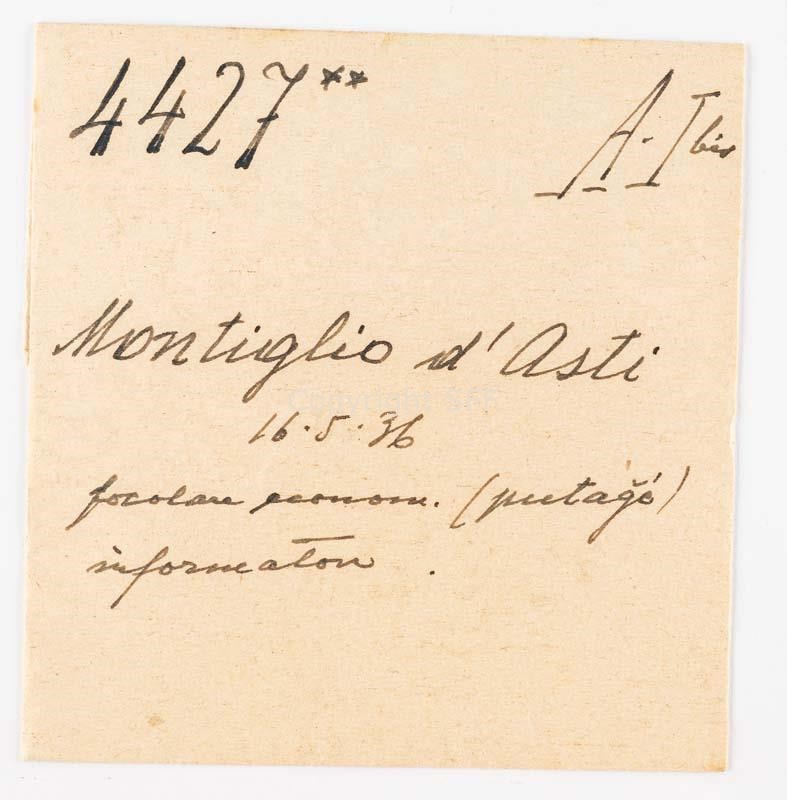 4427**
A. I bis
Montiglio d'Asti
16.5.36
focolare econom. (putağé)
informatori .